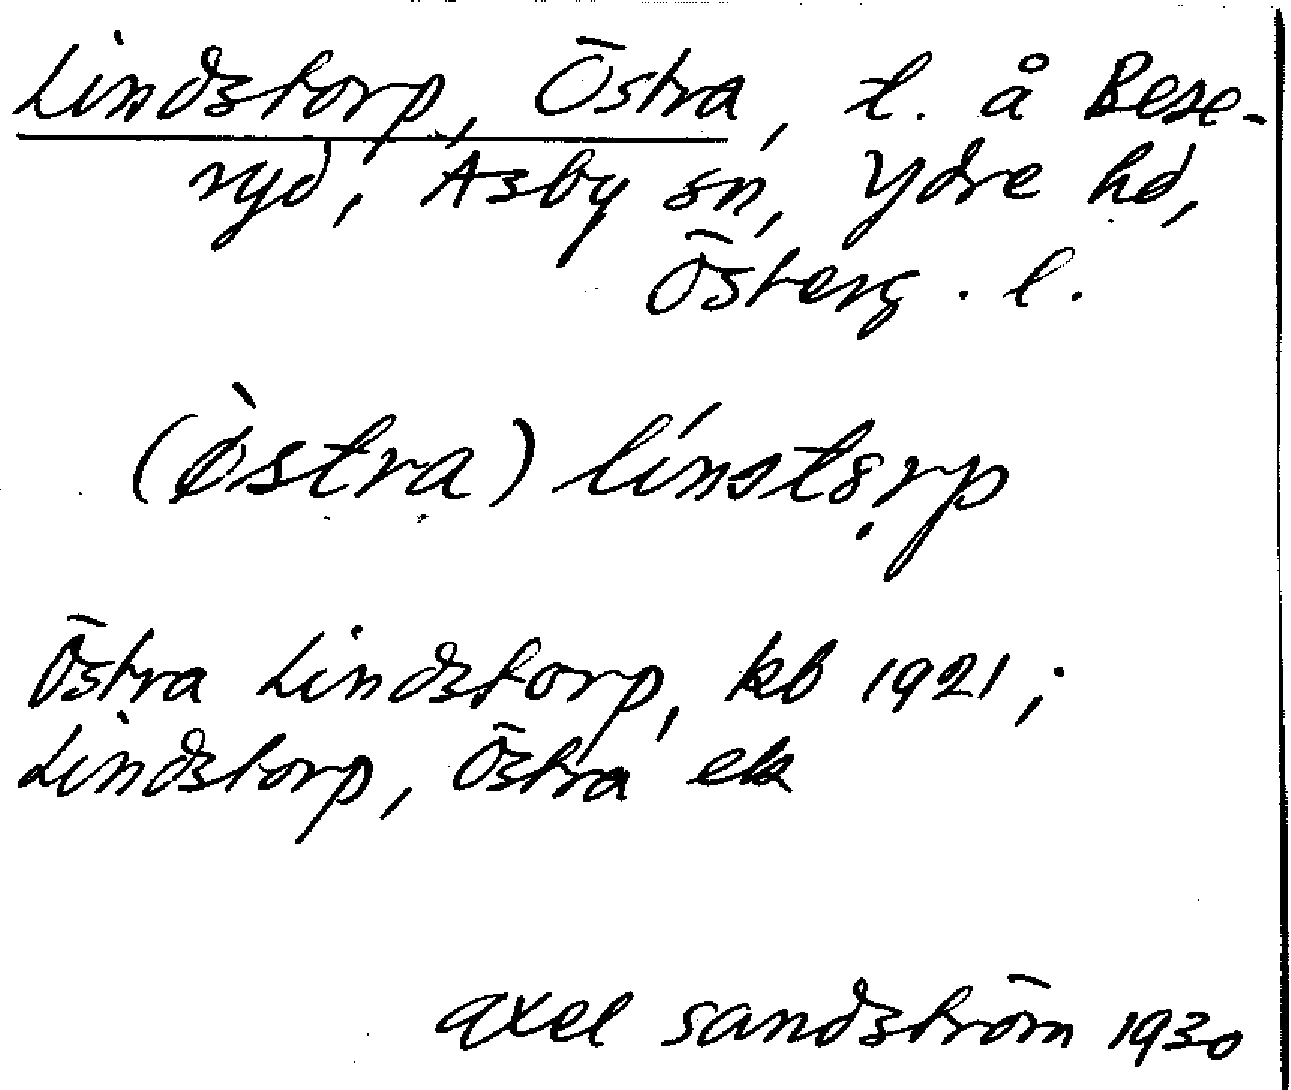 Lindstorp, Östra, t. å Bese-
ryd, Asby sn, Ydre hd,
Österg. l.
(østra) línstɷrp
Östra Lindstorp, kb 1921;
Lindstorp, Östra ek
Axel Sandström 1930